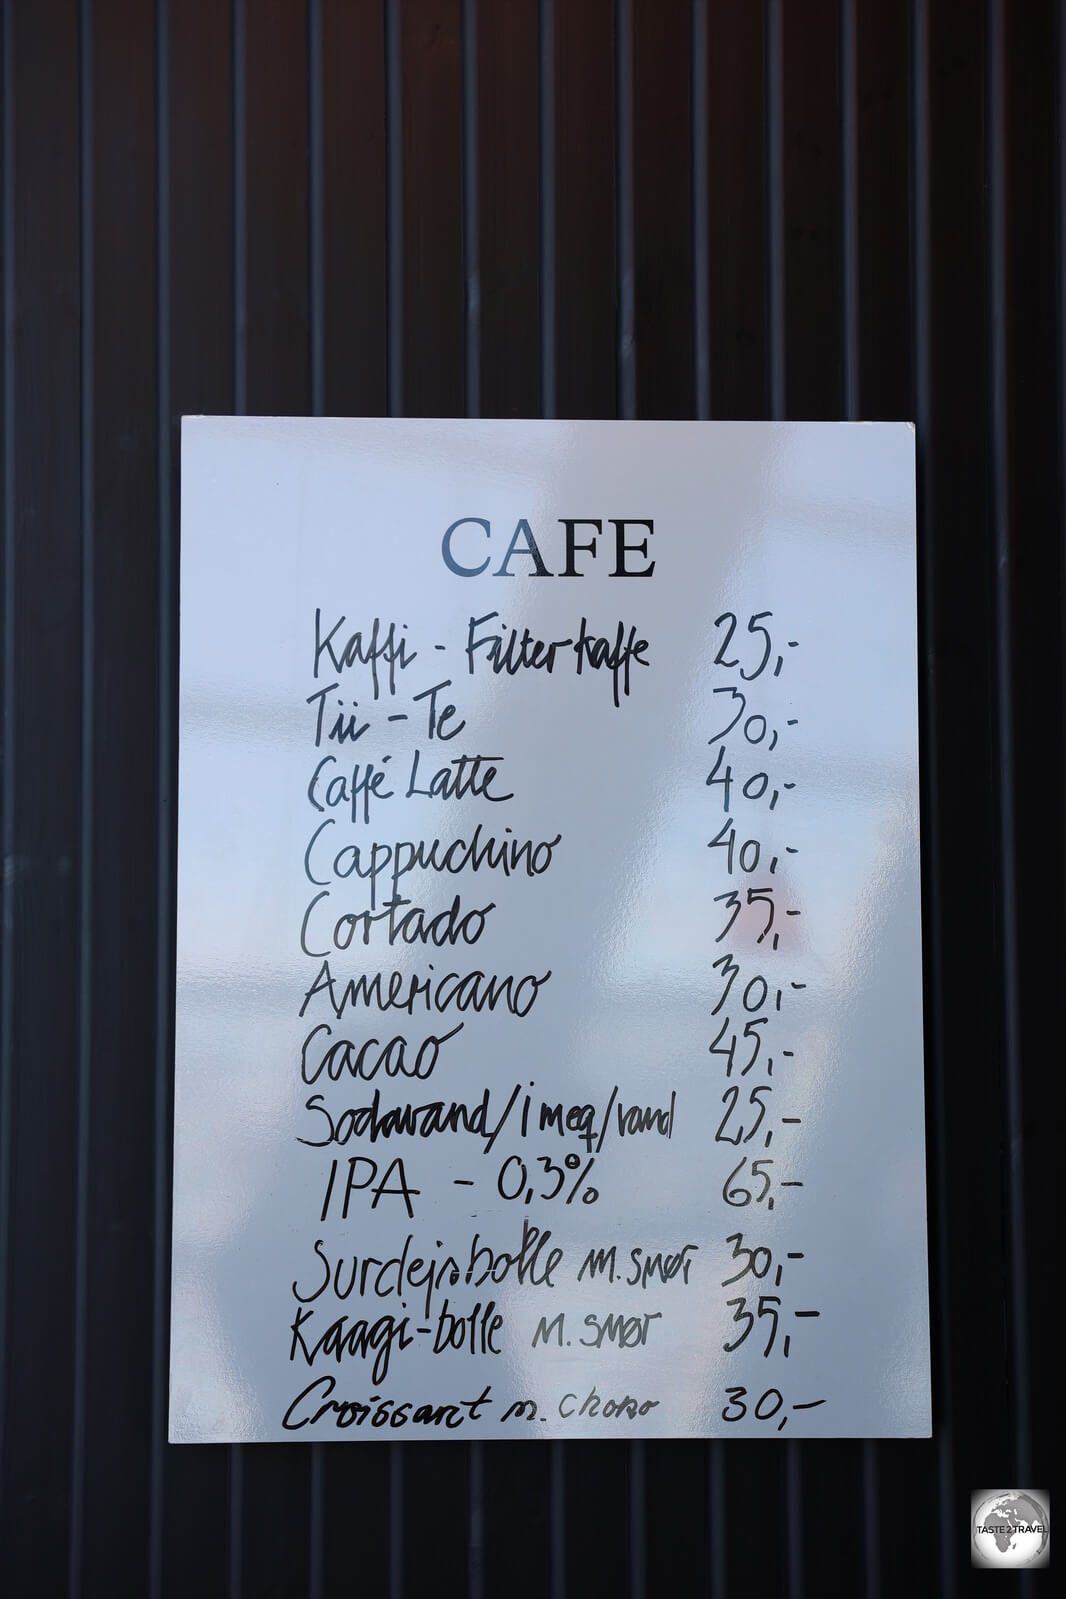 CAFE
Kaffi - Filterkaffe 25,-
Tii - Te 30,-
Caffé Latte 40,-
Cappuchino 40,-
Cortado 35,-
Americano 30,-
Cacao 45,-
Sodavand/imeq/vand 25,-
IPA - 0,3% 65,-
Surdejsbolle m. smør 30,-
Kaagi-bolle m. smør 35,-
Croissant m. choko 30,-
TASTE2TRAVEL